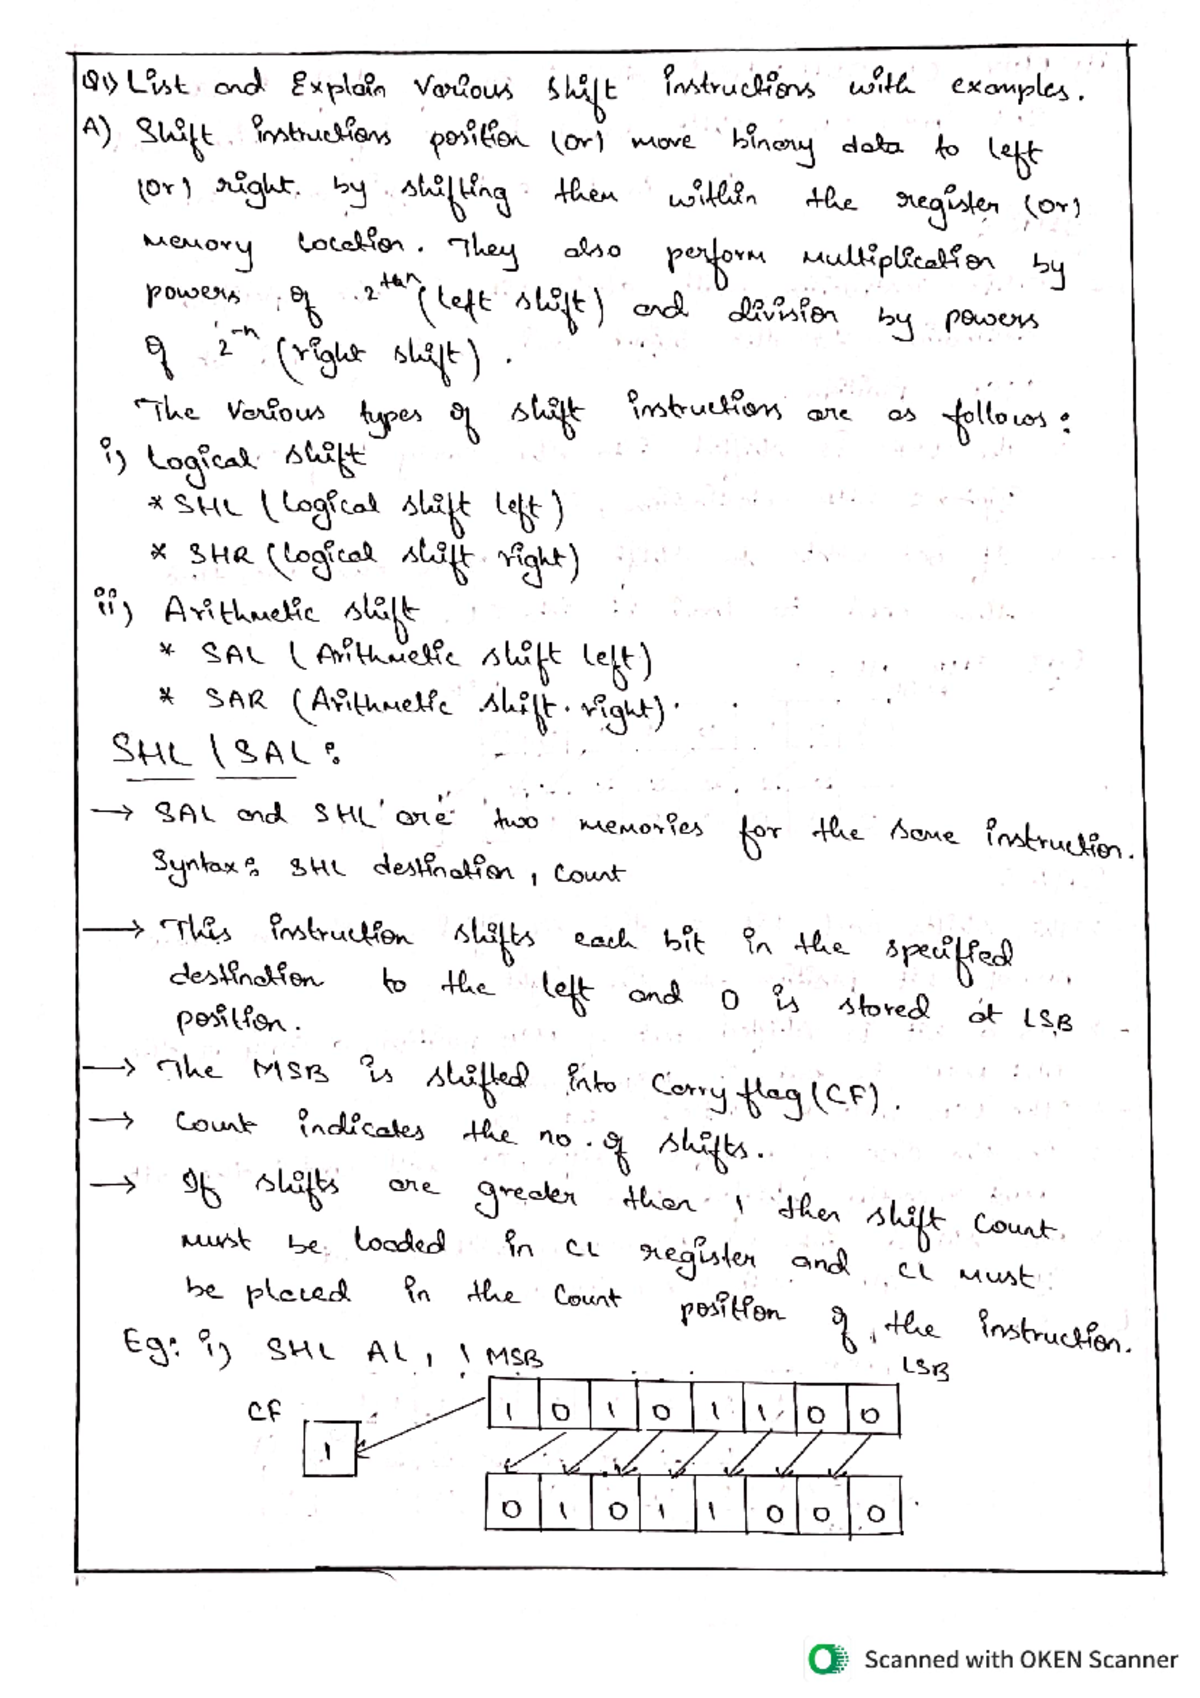 Q1) List and Explain Various shift instructions with examples.
A) Shift instructions position (or) move binary data to left
(or) right by shifting them within the register (or)
memory location. They also perform multiplication by
powers of 2^+n (left shift) and division by powers
of 2^-n (right shift).
The Various types of shift instructions are as follows:
i) Logical shift
* SHL (Logical shift left)
* SHR (Logical shift right)
ii) Arithmetic shift
* SAL (Arithmetic shift left)
* SAR (Arithmetic shift right).
SHL | SAL:
→ SAL and SHL are two memories for the same instruction.
Syntax: SHL destination, count
→ This instruction shifts each bit in the specified
destination to the left and 0 is stored at LSB
position.
→ The MSB is shifted into Carry flag (CF).
→ Count indicates the no. of shifts.
→ If shifts are greater than 1 then shift count
must be loaded in CL register and CL must
be placed in the count position of the instruction.
Eg: i) SHL AL, 1 MSB LSB
CF
1 0 1 0 1 1 0 0
1
0 1 0 1 1 0 0 0
Scanned with OKEN Scanner